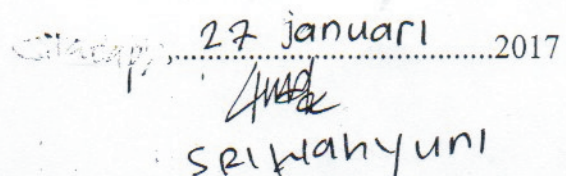 Cilacap, 27 januari 2017
SRI WAHYUNI